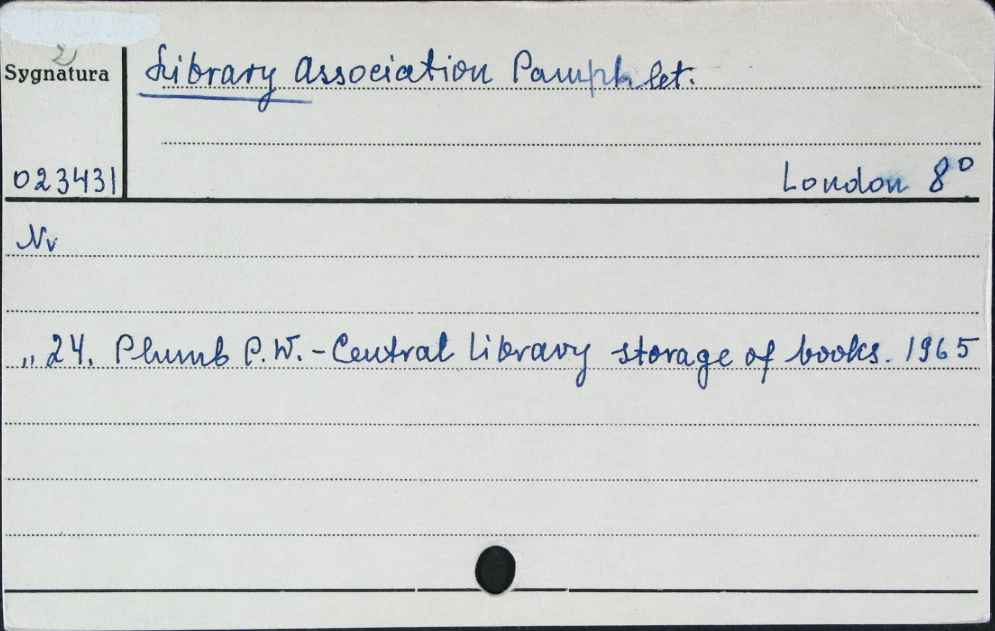 Sygnatura
Library Association Pamphlet.
023431
London 8°
Nr
„ 24. Plumb P.W. - Central library storage of books. 1965